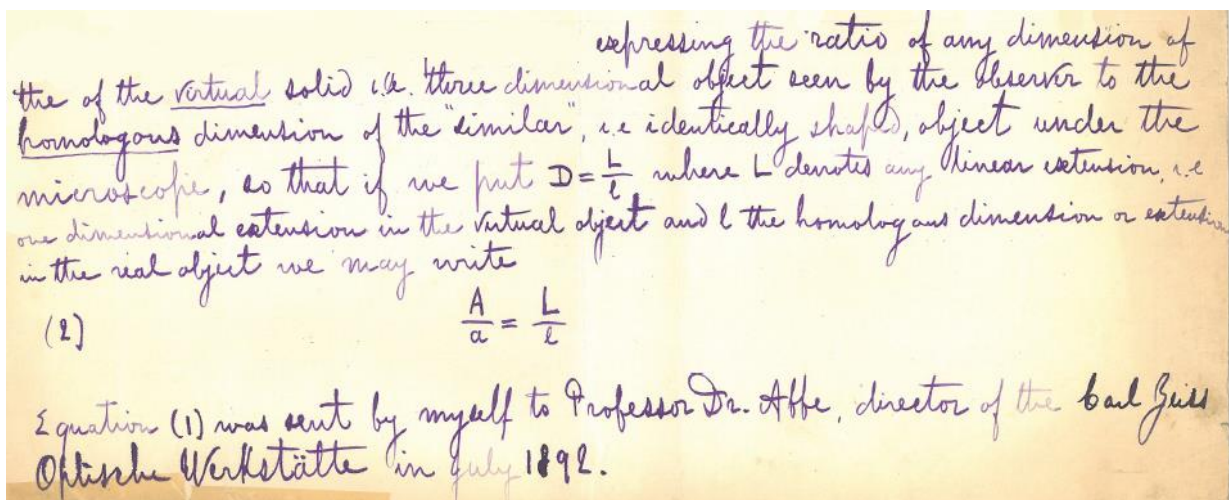 expressing the ratio of any dimension of
the of the virtual solid i.e. three dimensional object seen by the observer to the
homologous dimension of the "similar", i.e identically shaped, object under the
microscope, so that if we put D = L/l where L denotes any linear extension, i.e
one dimensional extension in the virtual object and l the homologous dimension or extension
in the real object we may write
(2) A/a = L/l
Equation (1) was sent by myself to Professor Dr. Abbe, director of the Carl Zeiss
Optische Werkstätte in july 1892.